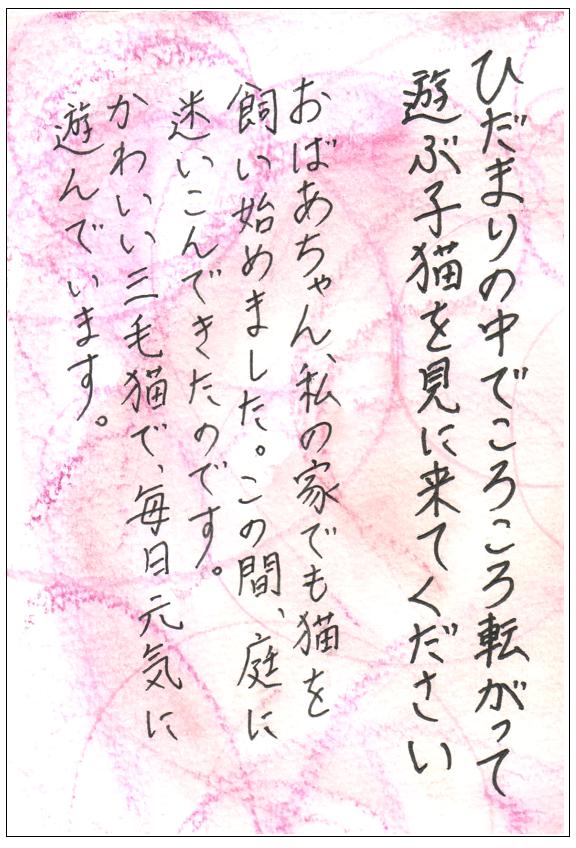 ひだまりの中でころころ転がって
遊ぶ子猫を見に来てください
おばあちゃん、私の家でも猫を
飼い始めました。この間、庭に
迷いこんできたのです。
かわいい三毛猫で、毎日元気に
遊んでいます。